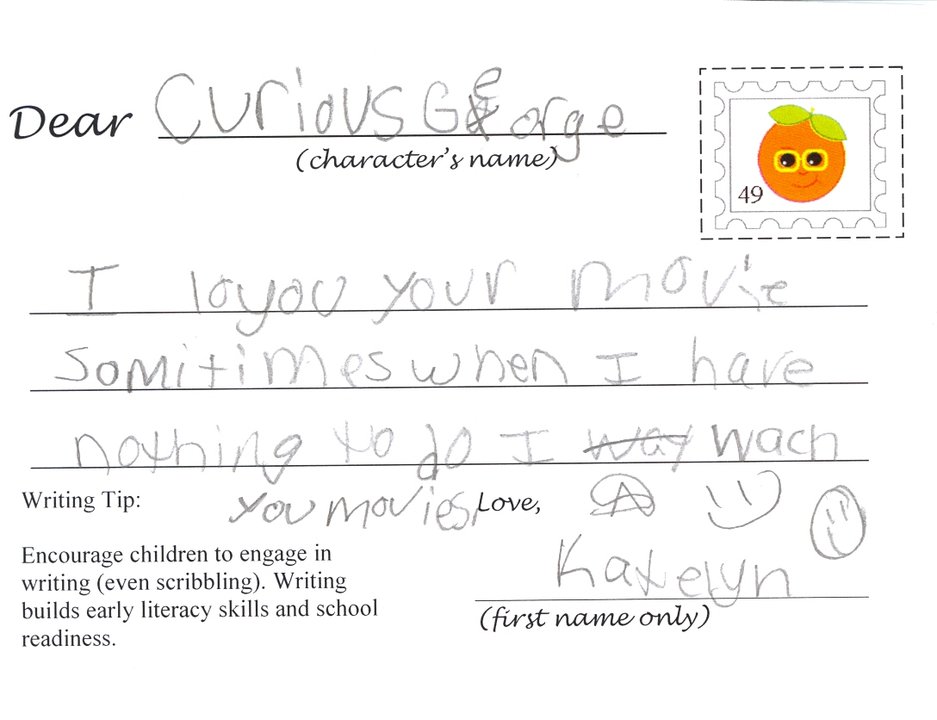 Dear Curious George
(character's name)
49
I loyou your movie
somitimes when I have
nothing to do I way wach
you movies
Love,
Katelyn
(first name only)
Writing Tip:
Encourage children to engage in
writing (even scribbling). Writing
builds early literacy skills and school
readiness.